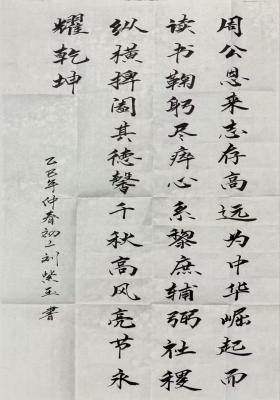 周公恩来志存高远为中华崛起而
读书鞠躬尽瘁心系黎庶辅弼社稷
纵横捭阖其德馨千秋高风亮节永
耀乾坤
乙巳年仲春初二刘紫玉书